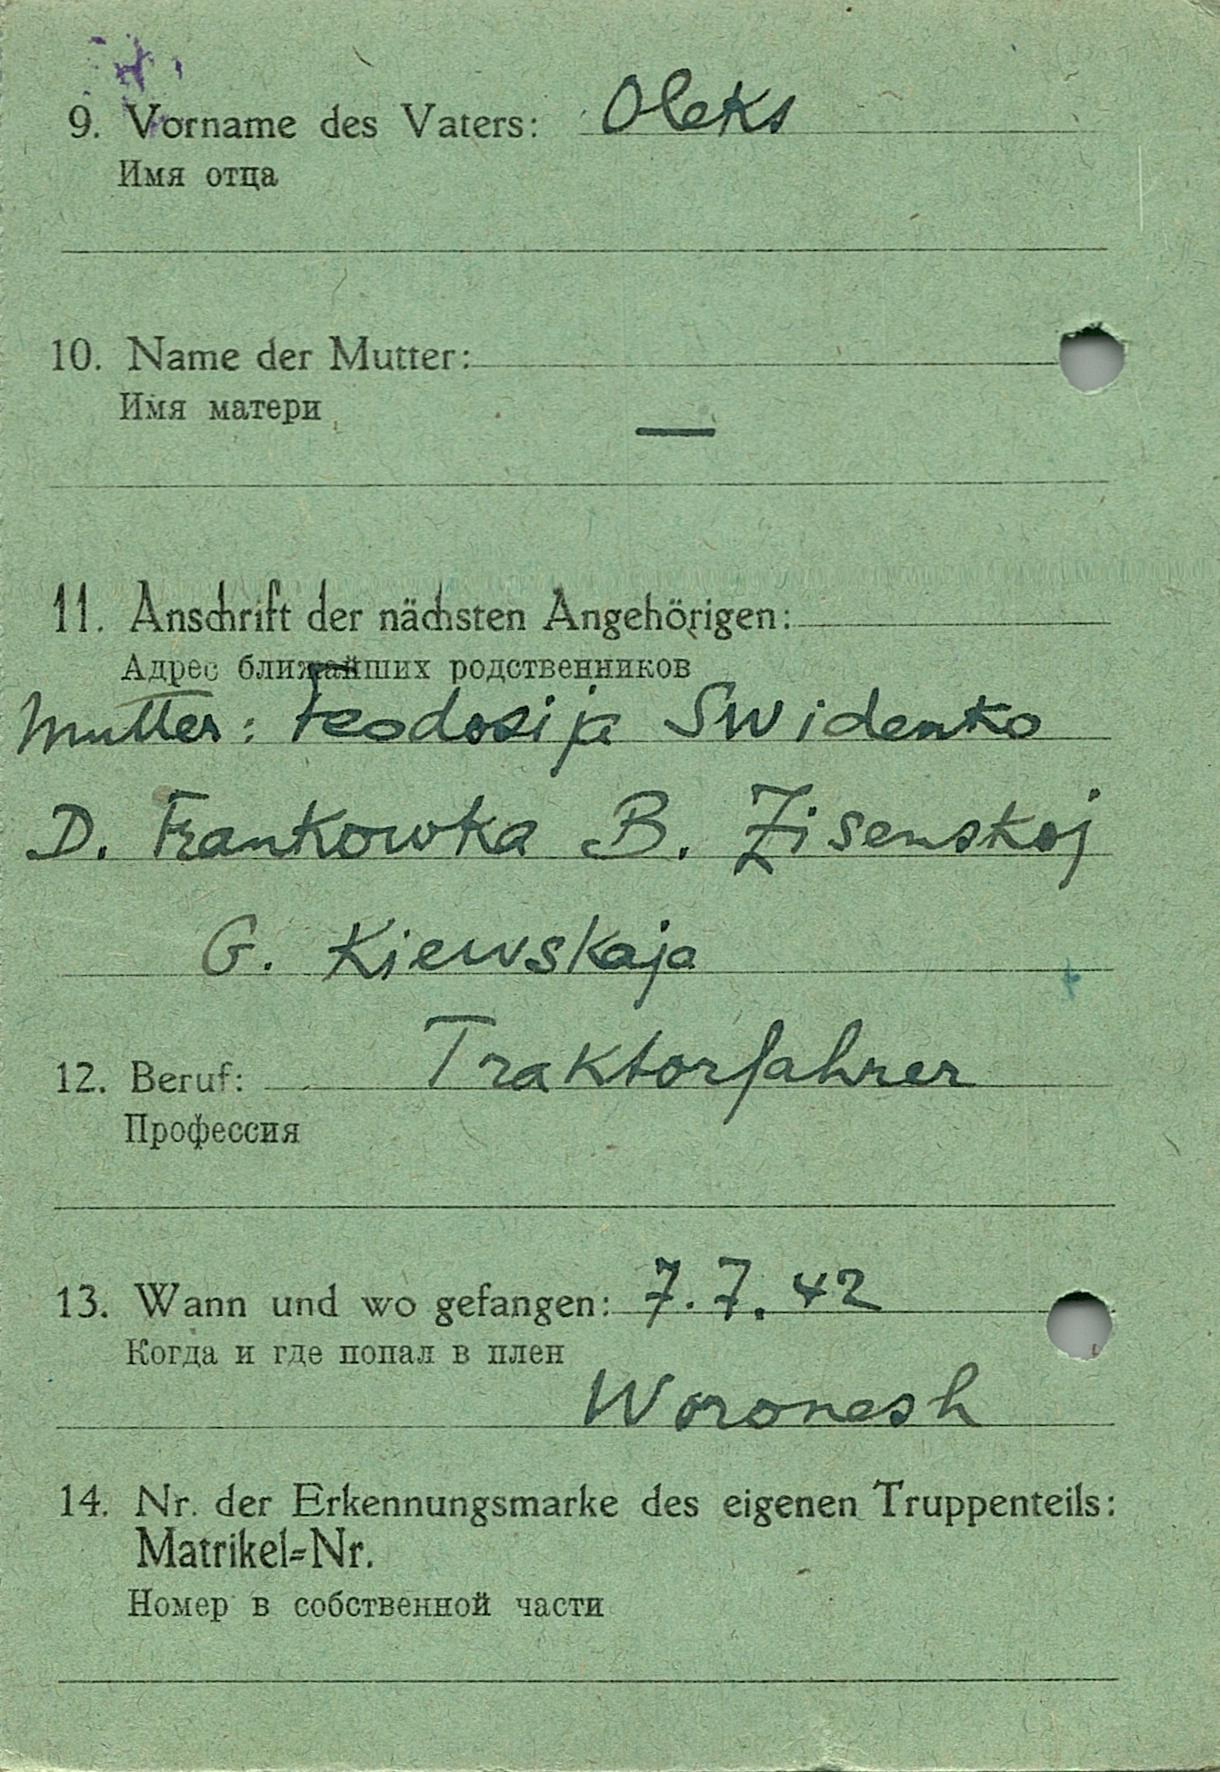 9. Vorname des Vaters: Oleks
Имя отца
10. Name der Mutter:
Имя матери
—
11. Anschrift der nächsten Angehörigen:
Адрес ближайших родственников
Mutter: Feodosija Swidenko
D. Frankowka B. Zisenskoj
G. Kiewskaja
12. Beruf: Traktorfahrer
Профессия
13. Wann und wo gefangen: 7.7.42
Когда и где попал в плен
Woronesh
14. Nr. der Erkennungsmarke des eigenen Truppenteils:
Matrikel=Nr.
Номер в собственной части